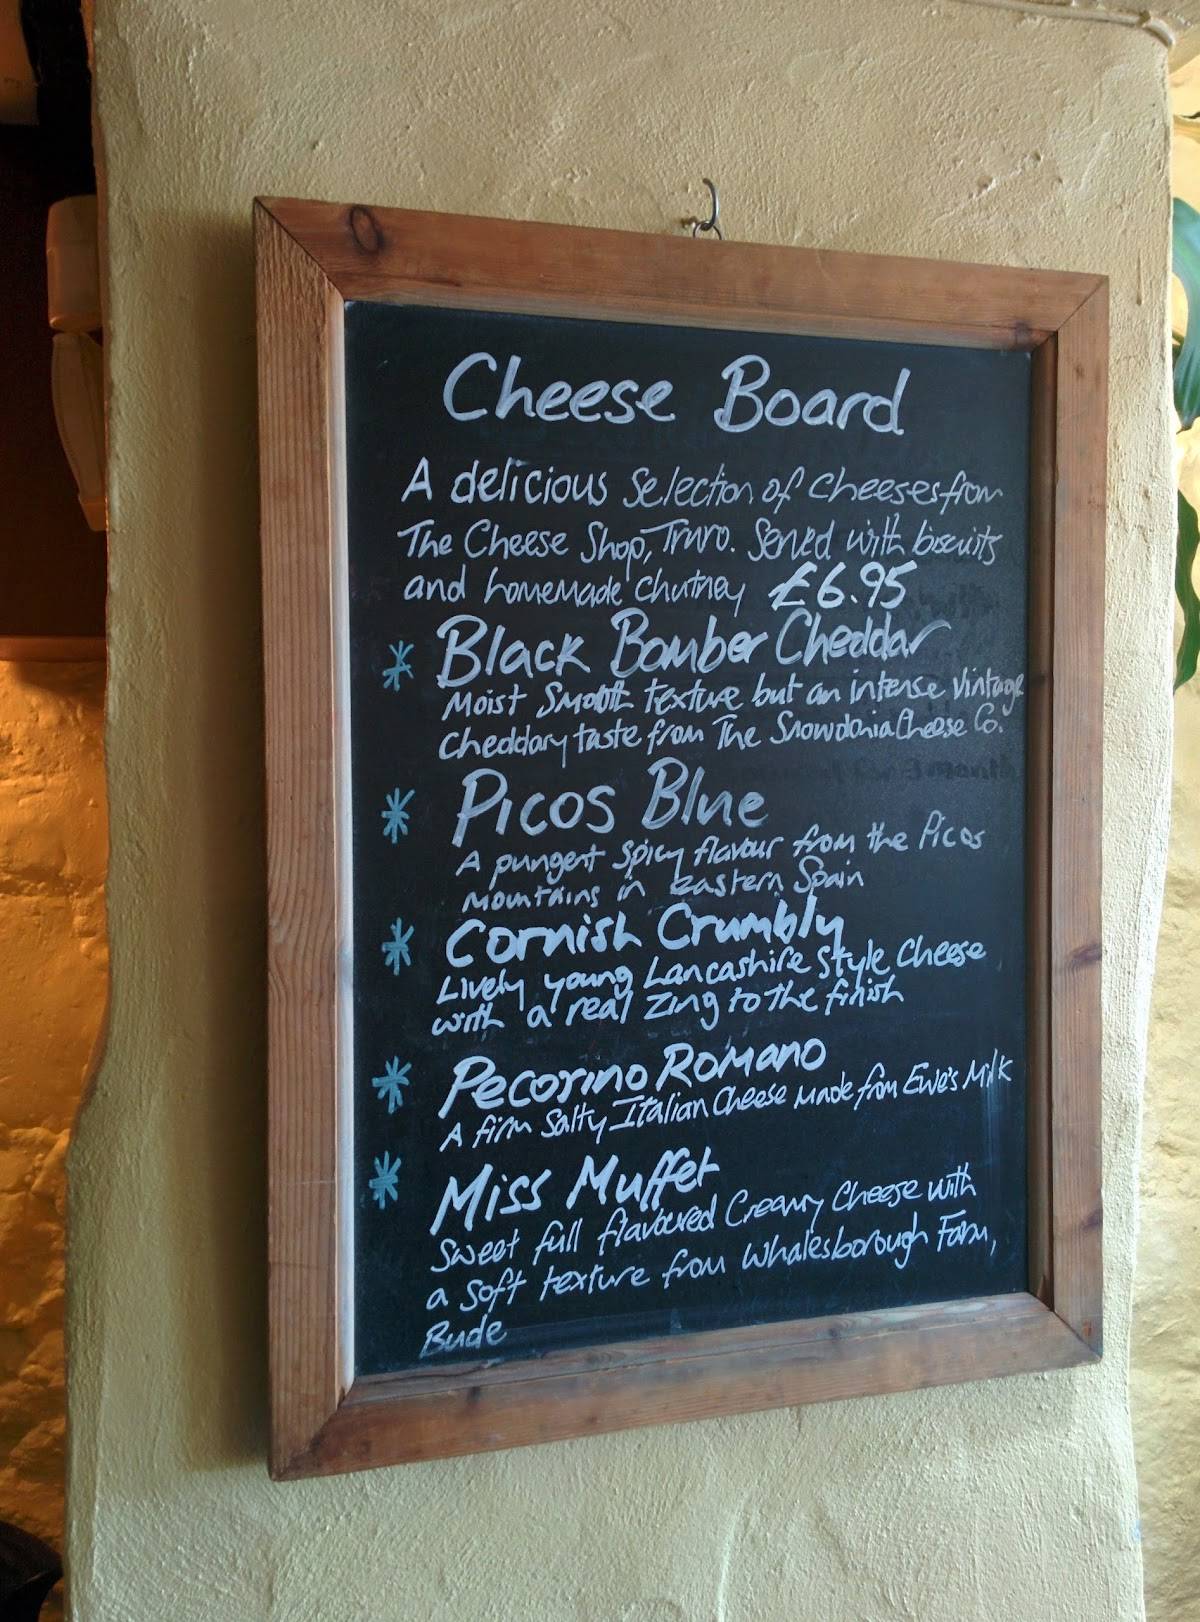 Cheese Board
A delicious selection of cheeses from
The Cheese Shop, Truro. Served with biscuits
and homemade chutney £6.95
* Black Bomber Cheddar
Moist Smooth texture but an intense vintage
Cheddary taste from The Snowdonia Cheese Co.
* Picos Blue
A pungent spicy flavour from the Picos
mountains in eastern Spain
* Cornish Crumbly
Lively young Lancashire Style Cheese
with a real zing to the finish
* Pecorino Romano
A firm Salty Italian Cheese made from Ewe's Milk
* Miss Muffet
Sweet full flavoured Creamy Cheese with
a soft texture from Whalesborough Farm,
Bude